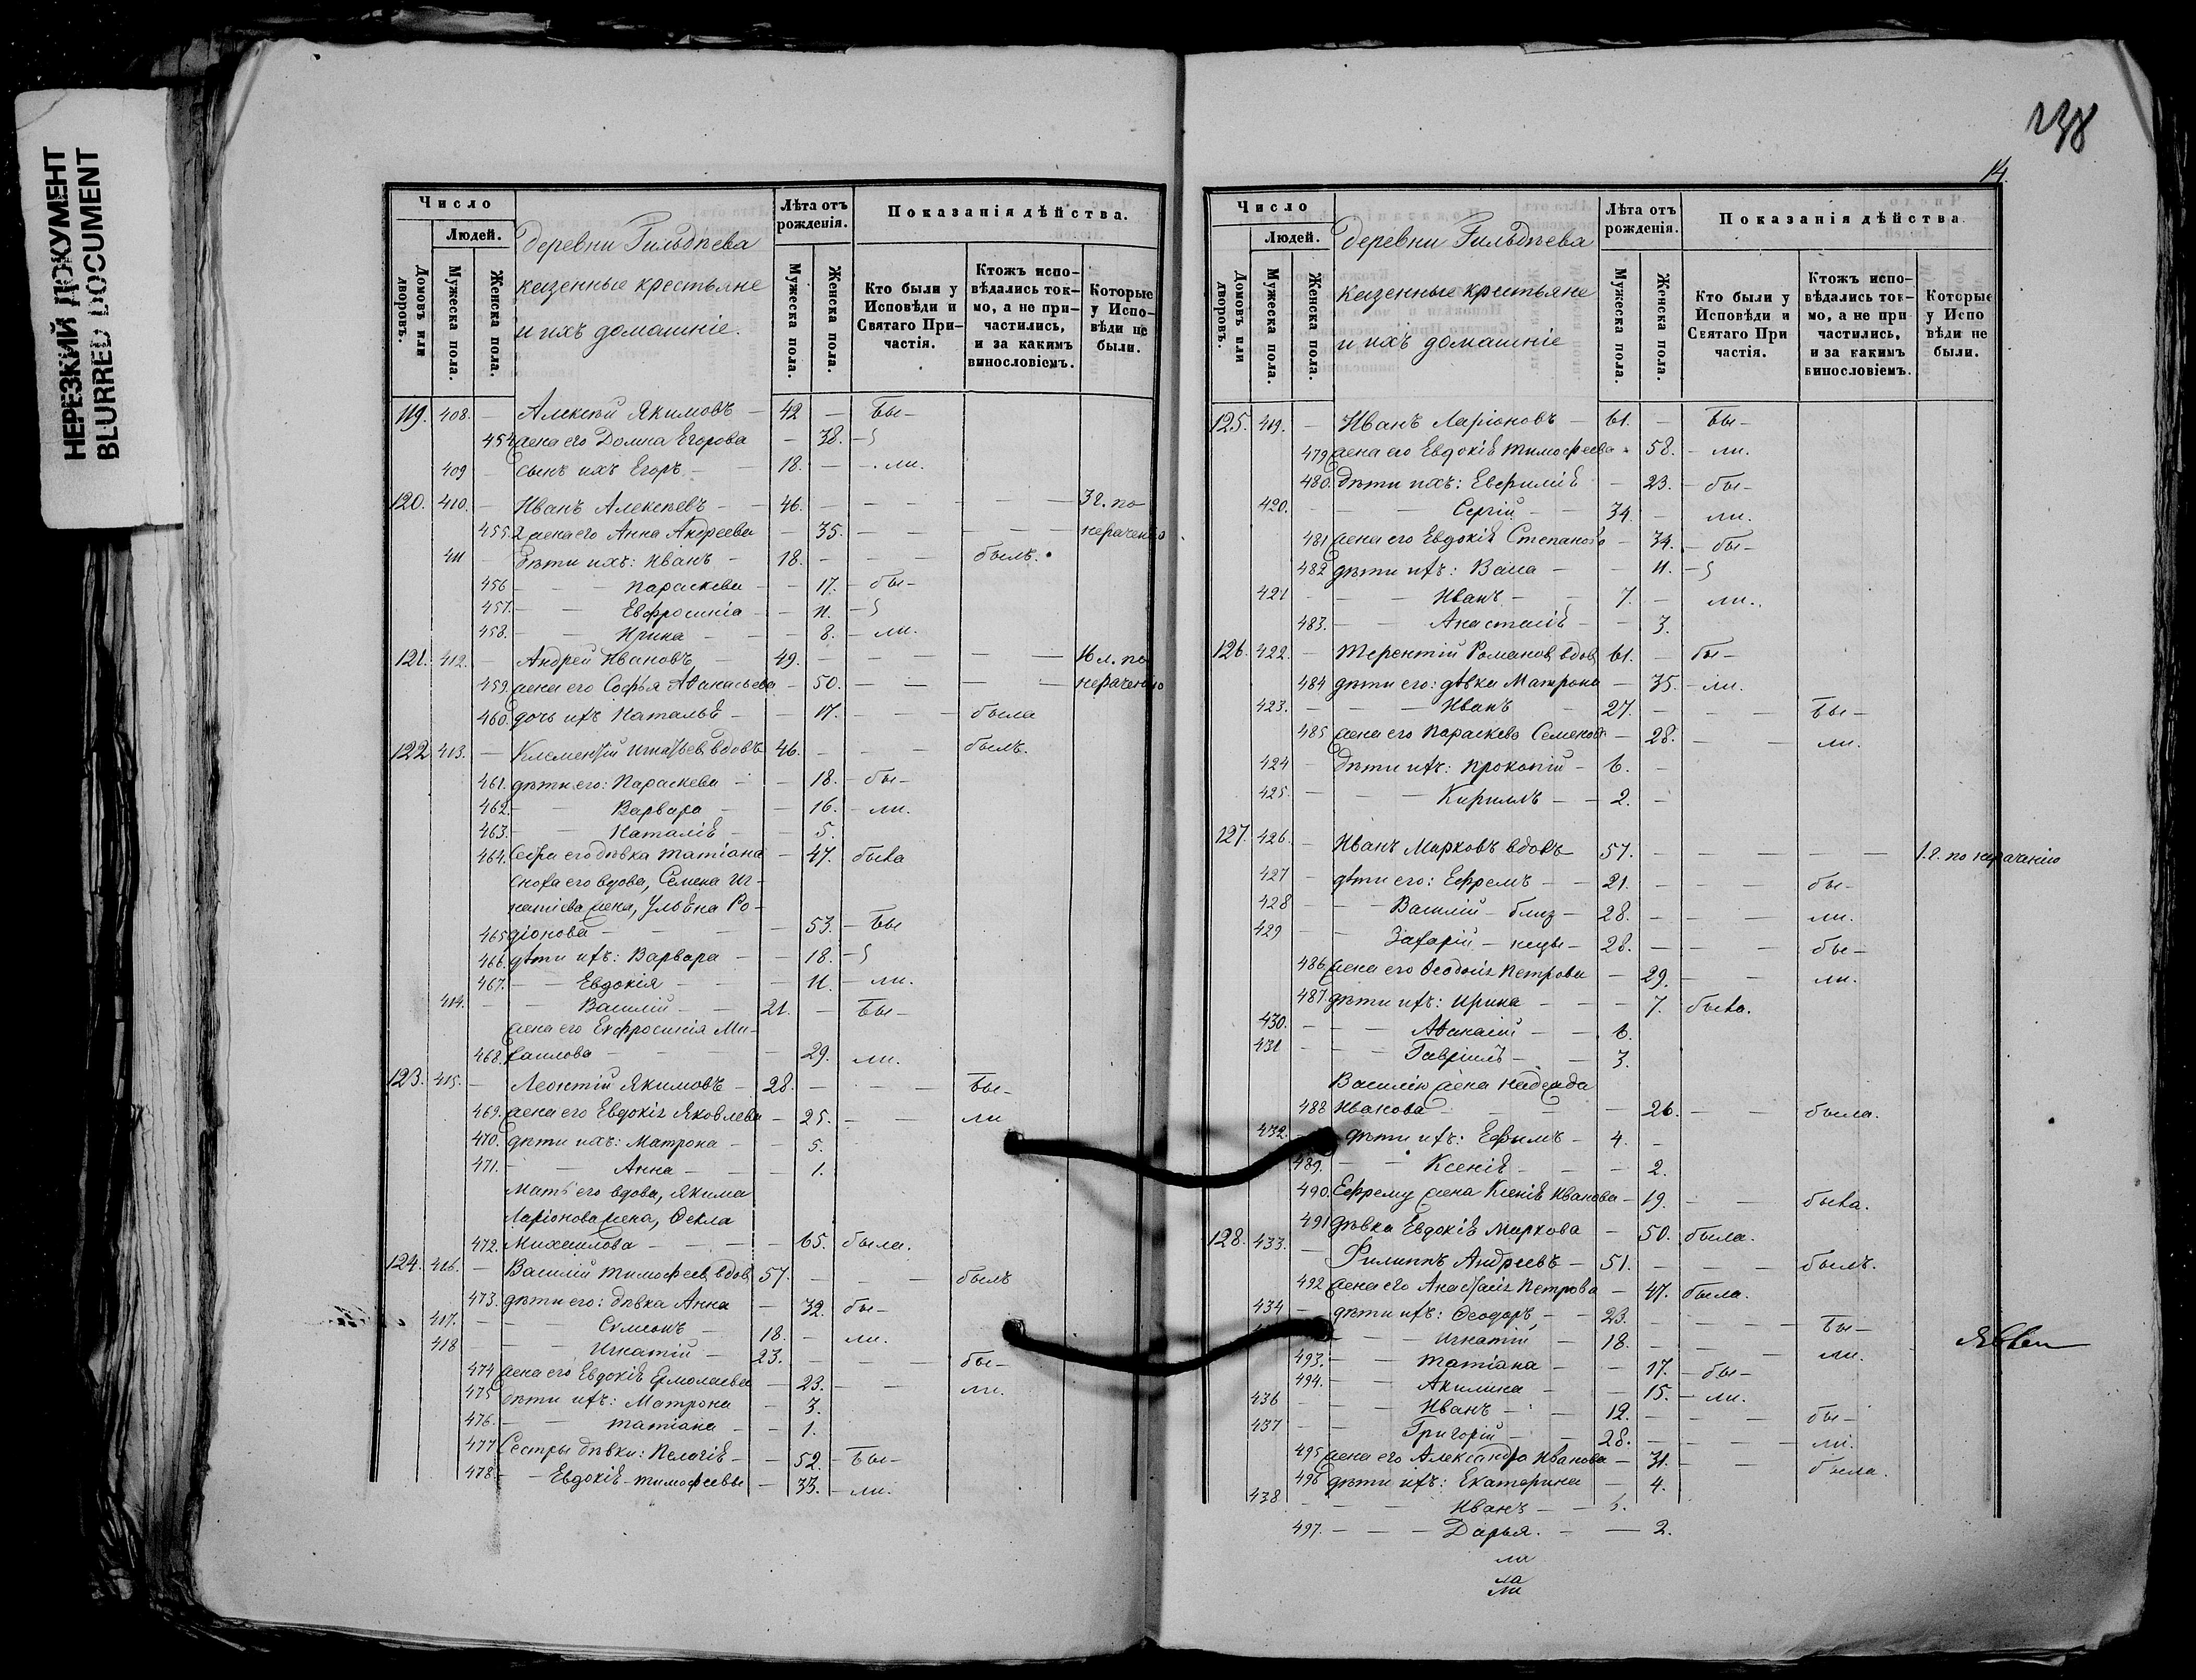 НЕРЕЗКИЙ ДОКУМЕНТ
BLURRED DOCUMENT
238
14.
Число
Людей.
Домовъ или дворовъ.
Мужеска пола.
Женска пола.
деревни Гильдѣева
казенные крестьяне
и ихъ домашніе.
Лѣта отъ рожденія.
Мужеска пола.
Женска пола.
Показанія дѣйства.
Кто были у Исповѣди и Святаго Причастія.
Ктожъ исповѣдались токмо, а не причастились, и за какимъ винословіемъ.
Которые у Исповѣди не были.
119. 408. — Алексѣй Якимовъ — 42 — Бы-
454 жена его Домна Егорова — 38. —
409 — сынъ ихъ Егоръ — 18. — — ли.
120. 410. — Иванъ Алексѣевъ — 46. — — — — — 3 г. по
455. 2 жена его Анна Андреева — 35. — — — — нераченію
411 — дѣти ихъ: Иванъ — 18. — — — былъ.
456 — — Параскева — — 17. — бы-
457. — — Евфросинія — — 11. —
458. — — Ирина — — 8. — ли.
121. 412. — Андрей Ивановъ — 49. — — — — — 16 л. по
459. жена его Софья Аѳанасьева — 50. — — — — нераченію
460. дочь ихъ Наталья — — 17. — — — была
122. 413. — Климентій Игнатьев, вдовъ 46. — — — былъ.
461. дѣти его: Параскева — — 18. — бы-
462. — — Варвара — — 16. — ли.
463. — — Наталія — — 5.
464. Сестра его дѣвка Татіана — 47. была
Сноха его вдова, Семена Иг-
натіева жена, Ульяна Ро-
465 діонова — — — — 53. — Бы
466. дѣти ихъ: Варвара — — 18. —
467. — — Евдокія — — — 11. — ли.
414. — — Василій — — 21. — Бы-
жена его Евфросинія Ми-
468. хаилова — — — — 29. ли.
123. 415. — Леонтій Якимовъ — 28. — — — Бы-
469. жена его Евдокія Яковлева — 25. — — ли
470. дѣти ихъ: Матрона — — 5.
471. — — Анна — — — 1.
Мать его вдова, Якима
Ларіонова жена, Ѳекла
472. Михаилова — — — — 65. была.
124. 416. — Василій Тимофеев, вдов 57. — — — былъ
473. дѣти его: дѣвка Анна — 32. бы-
417. — — — Симеонъ — 18. — ли.
418 — — — Игнатій — 23. — — — бы-
474 жена его Евдокія Ермолаева — 23. — — ли.
475 дѣти ихъ: Матрона — 3.
476. — — Татіана — — 1.
477 Сестры дѣвки: Пелагія — — 52. — Бы-
478. — — Евдокія — Тимофеевы — 33. — ли.
Число
Людей.
Домовъ или дворовъ.
Мужеска пола.
Женска пола.
деревни Гильдѣева
казенные крестьяне
и ихъ домашніе
Лѣта отъ рожденія.
Мужеска пола.
Женска пола.
Показанія дѣйства
Кто были у Исповѣди и Святаго При частія.
Ктожъ исповѣдались токмо, а не при частились, и за какимъ винословіемъ.
Которые у Испо вѣди не были.
125. 419. — Иванъ Ларіоновъ — 61. — Бы-
479 жена его Евдокія Тимофеева — 58. — ли.
480. дѣти ихъ: Евфимія — 23. — бы-
420. — — — Сергій — — 34. — ли.
481 жена его Евдокія Степанова — 34. — бы-
482 дѣти ихъ: Васса — — 11. —
421 — — — Иванъ — — 7. — ли.
483. — — Анастасія — — 3.
126. 422. — Терентій Романов, вдов, 61. — бы-
484 дѣти его: дѣвка Матрона — 35. — ли.
423. — — — Иванъ — 27. — — — Бы-
485 жена его Параскева Семенова — 28. — — ли.
424 — дѣти ихъ: Прокопій — 6. —
425. — — — Кириллъ — — 2. —
127. 426. — Иванъ Марковъ вдовъ — 57. — — — — — 1 г. по нераченію
427 — дѣти его: Ефремъ — — 21. — — — бы-
428 — — Василій — близ — 28. — — — ли.
429 — — Захарій — нецы — 28. — — — бы-
486 жена его Ѳеодосія Петрова — 29. — — ли.
487 дѣти ихъ: Ирина — — — 7. была.
430. — — — Аѳанасій — — 6.
431 — — — Гавріилъ — — 3.
Василію жена Надежда
488 Иванова — — — — 26. — — была.
432. — дѣти ихъ: Ефимъ — 4. —
489. — — Ксенія — — — 2.
490. Ефрему жена Ксенія Иванова — 19. — — была.
491 дѣвка Евдокія Маркова — 50. была.
128. 433. — Филиппъ Андреевъ — 51. — — — былъ.
492 жена его Анастасія Петрова — 47. была.
434 — дѣти ихъ: Ѳеодоръ — — 23. — — — Бы-
— — Игнатій — 18. — — — ли.
493. — — Татіана — — 17. — бы-
494. — — Акилина — — 15. — ли.
436 — — — Иванъ — — 12. — — — бы-
437 — — — Григорій — — 28. — — — ли.
495 жена его Александра Иванова — 31. — — была.
496 дѣти ихъ: Екатерина — 4.
438 — — — Иванъ — —
497. — — — Дарья. — — 2.
ли
ла
ли